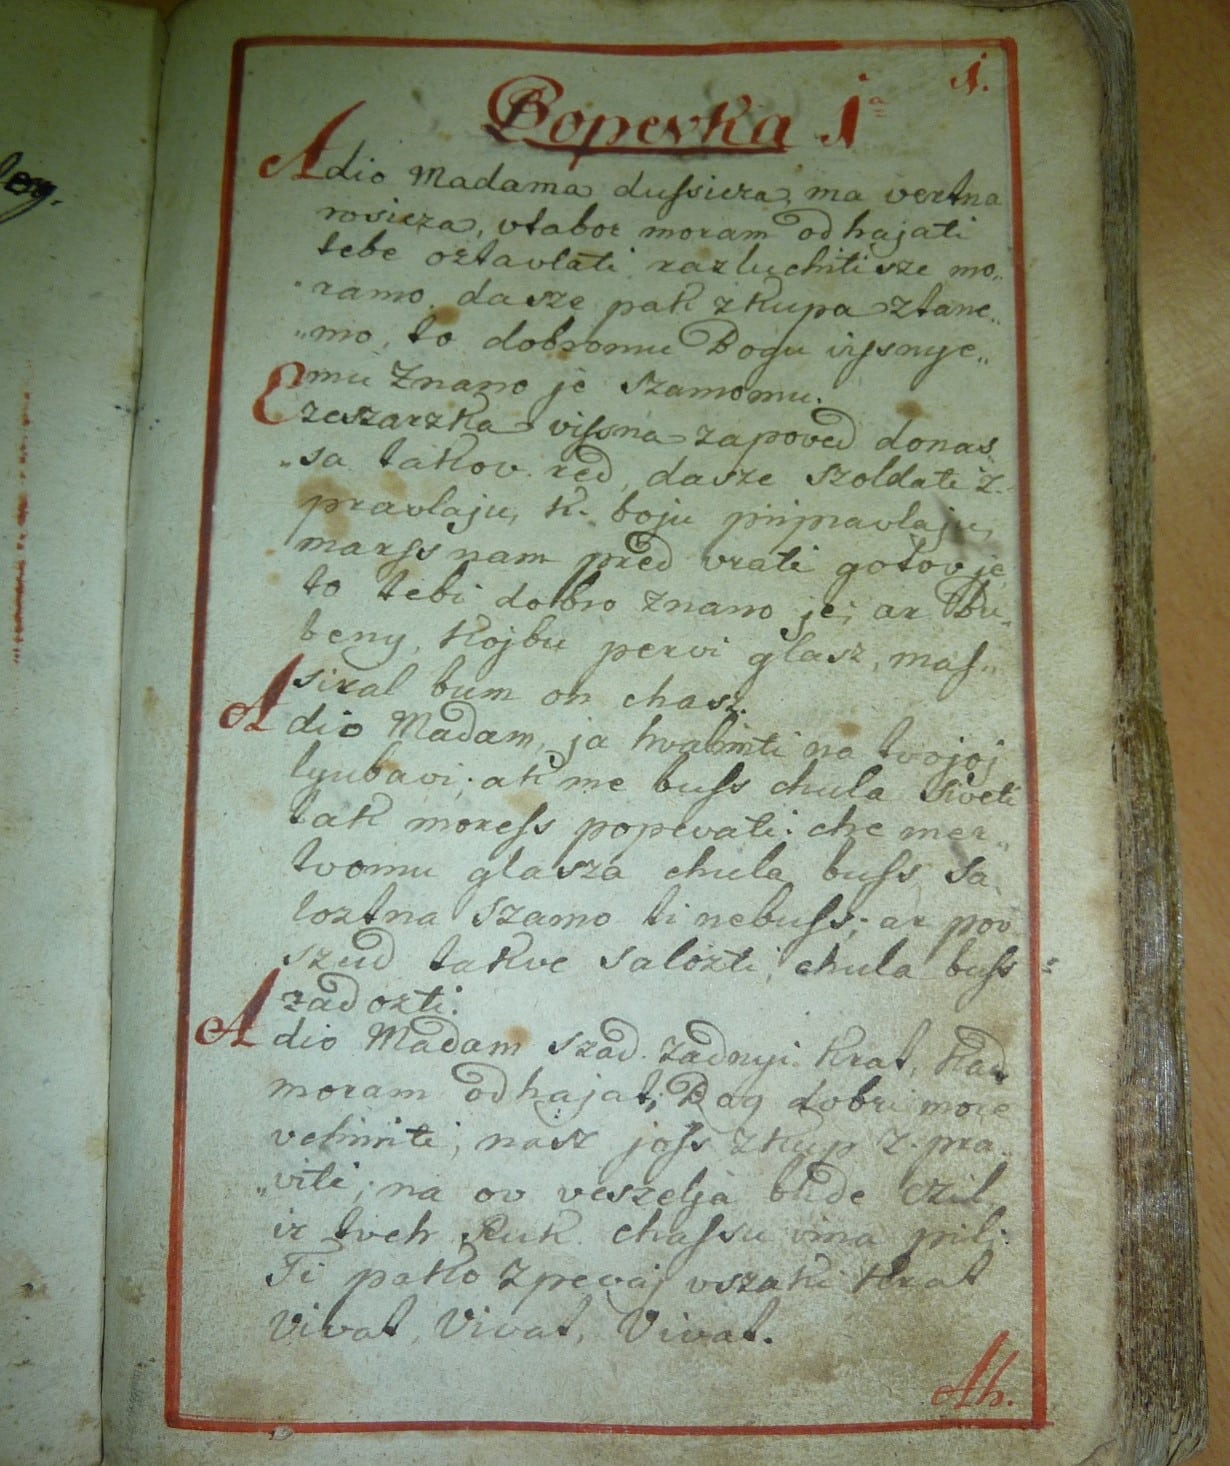 1.
Popevka 1ª
Adio Madama dussicza, ma vertna
rosicza, vtabor moram odhajati
tebe oztavlati, razluchiti sze mo„
ramo, da sze pak zkupa ztane„
„mo, to dobromu Bogu vissnye„
mu Znano je szamomu.
Czeszarzka vissna zapoved donas
„sa takov red, dasze szoldati z„
pravlaju, k. boju pripravlaju,
marss nam pred vrati gotov je
to tebi dobro znano je; ar Bu„
beny, kojbu pervi glasz, mas„
siral bum on chasz.
Adio Madam, ja hvalim ti na tvojoj
lyubavi; ak me buss chula siveti
tak moress popevati: che mer„
tvomu glasza chula buss, Sa„
loztna szamo ti nebuss; ar pov
szud takve salozti, chula buss
radozti.
Adio Madam szad. zadnyi. krat, kad
moram odhajat; Bog dobri more
vchiniti, nasz joss zkup z. pra„
„viti; na ov veszelja bude czil,
iz tveh Ruk chassu vina pil;
Ti pako zpevaj vszaki krat
Vivat, Vivat, Vivat.
Ah.